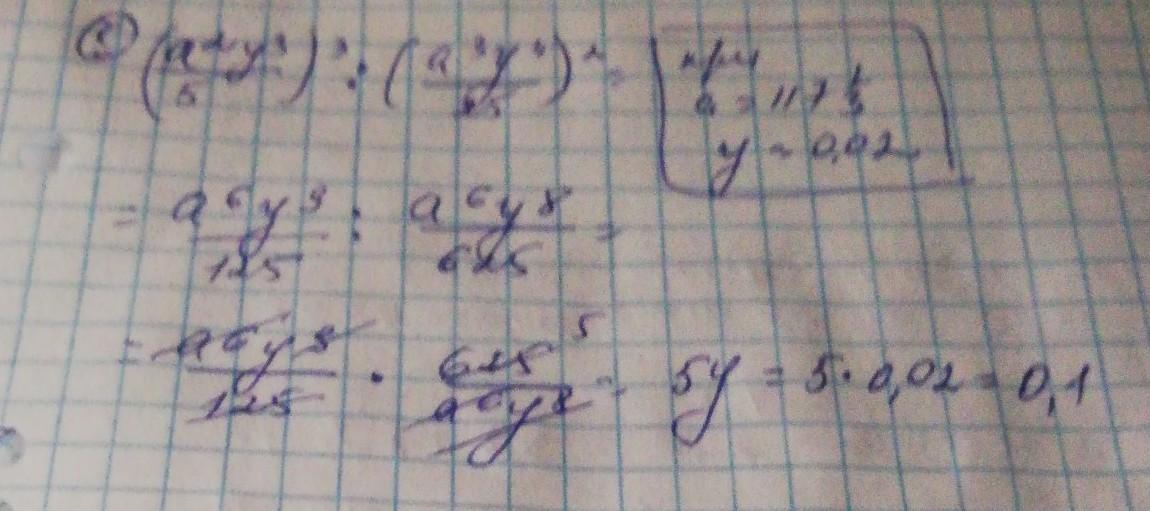 (a²y³/5)³ : (a³y⁴/25)² =
при
y = 0,02
= a⁶y⁹/125 : a⁶y⁸/625 =
= a⁶y⁹/125 · 625/a⁶y⁸ 5 = 5y = 5·0,02 = 0,1